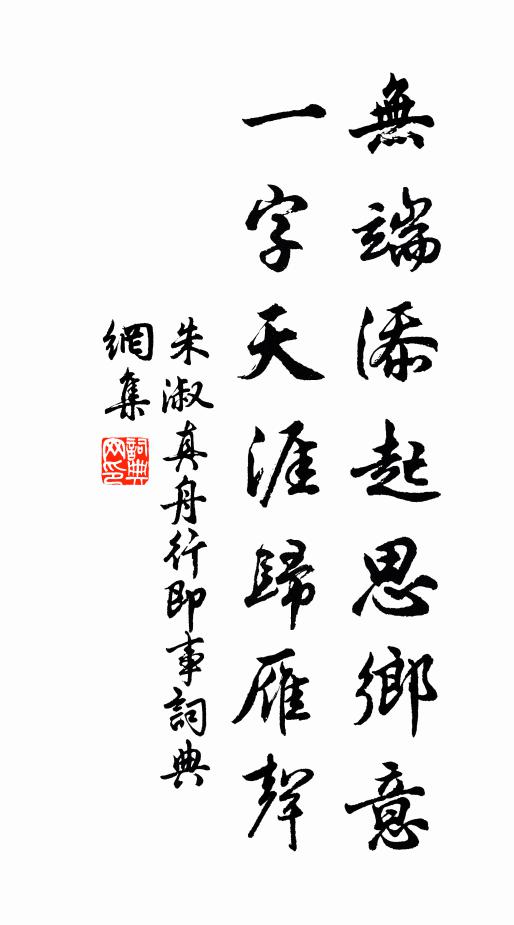 無端添起思鄉意
一字天涯歸雁聲
朱淑真舟行即事詞典
網集
詞典
网印